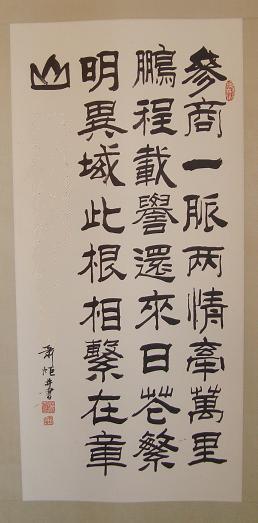 參商一脈两情牽萬里
鵬程載譽還來日花繁
明異域此根相繫在章
山